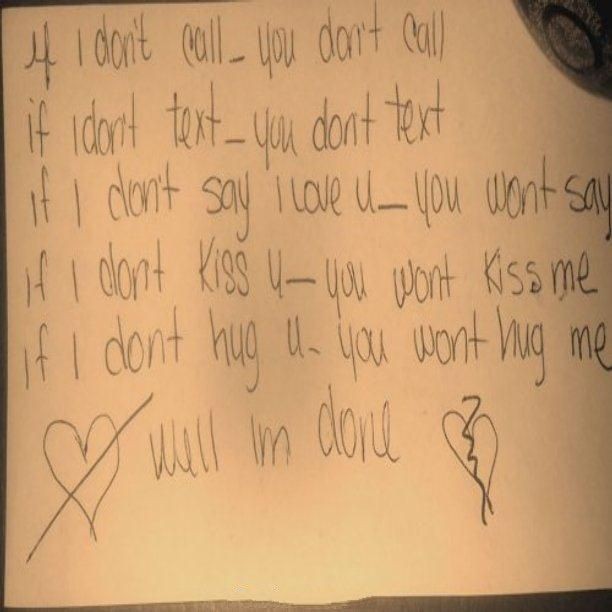 if I don't call - you don't call
if I don't text - you dont text
if I don't say i love u - you wont say
if I dont kiss u - you wont kiss me
if I dont hug u - you wont hug me
well im done